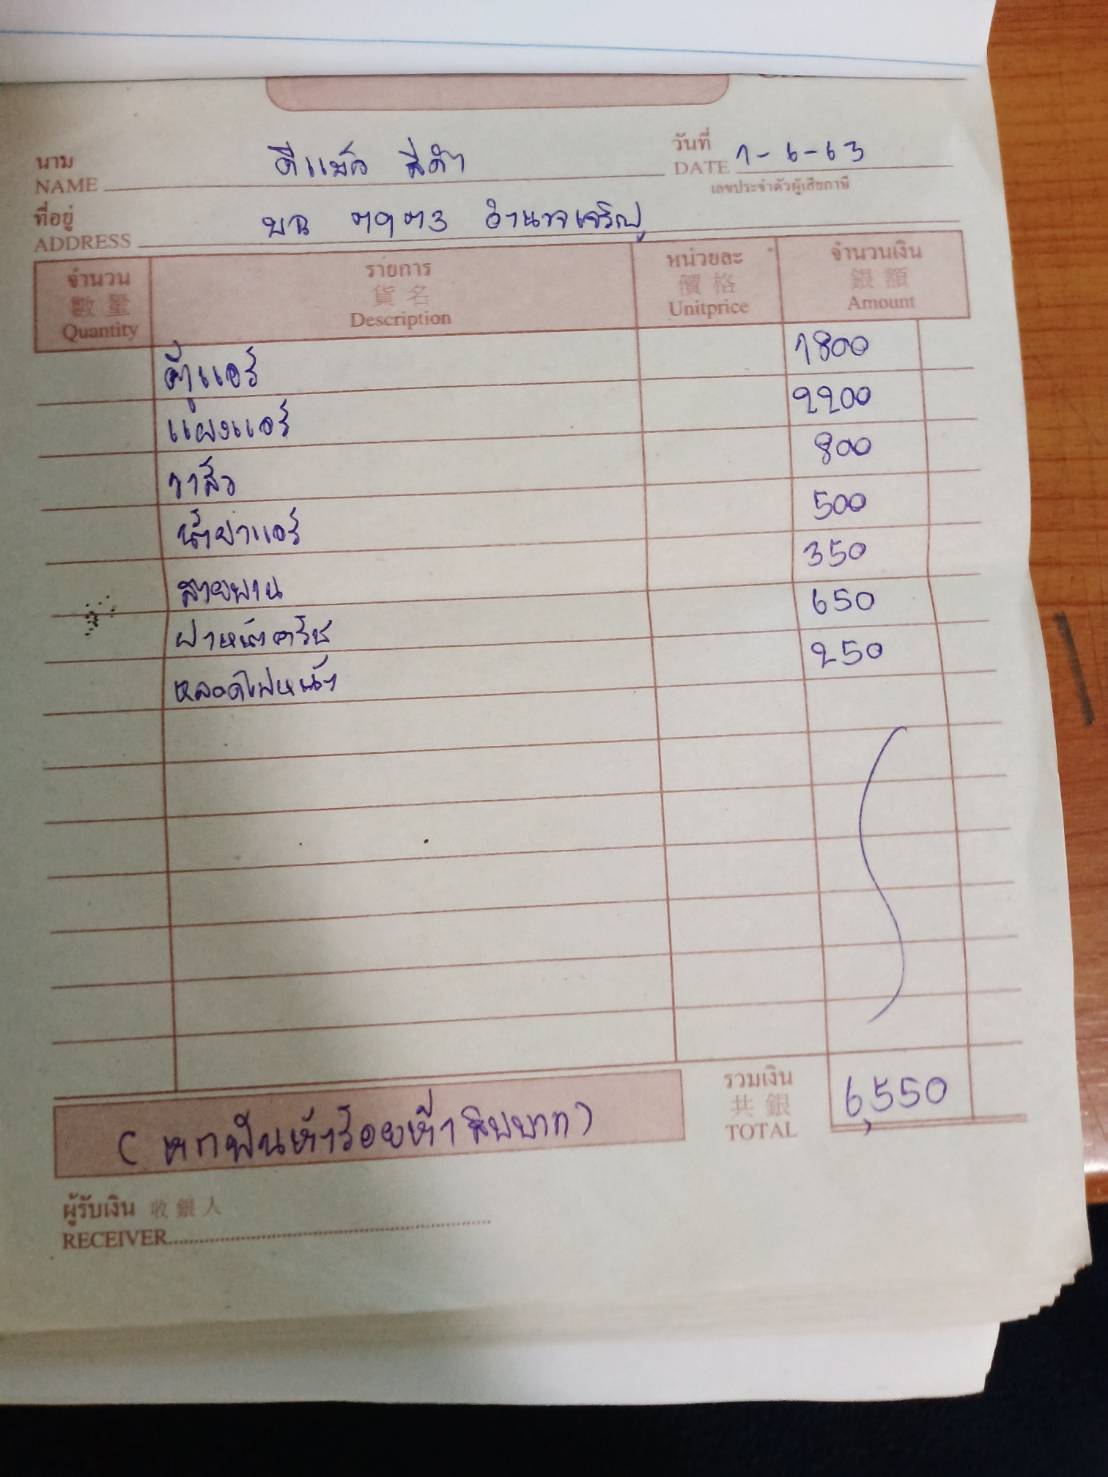 นาม
NAME ดีแม็ก สีดำ
วันที่
DATE 1-6-63
เลขประจำตัวผู้เสียภาษี
ที่อยู่
ADDRESS บฉ อำนาจเจริญ
จำนวน 數量 Quantity
รายการ 貨名 Description
หน่วยละ 價格 Unitprice
จำนวนเงิน 銀額 Amount
ตู้แอร์ 1800
แผงแอร์ 2200
วาล์ว 800
น้ำยาแอร์ 500
สายพาน 350
ผ่าหน้าครัช 650
หลอดไฟหน้า 250
(หกพันห้าร้อยห้าสิบบาท)
รวมเงิน
共銀
TOTAL 6,550
ผู้รับเงิน 收銀人
RECEIVER